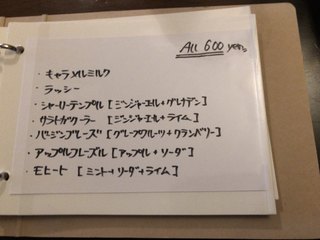 All 600 yen
・キャラメルミルク
・ラッシー
・シャーリーテンプル [ジンジャーエール+グレナデン]
・サラトガクーラー [ジンジャーエール+ライム]
・バージンブリーズ [グレープフルーツ+クランベリー]
・アップルフレーズル [アップル+ソーダ]
・モヒート [ミント+ソーダ+ライム]